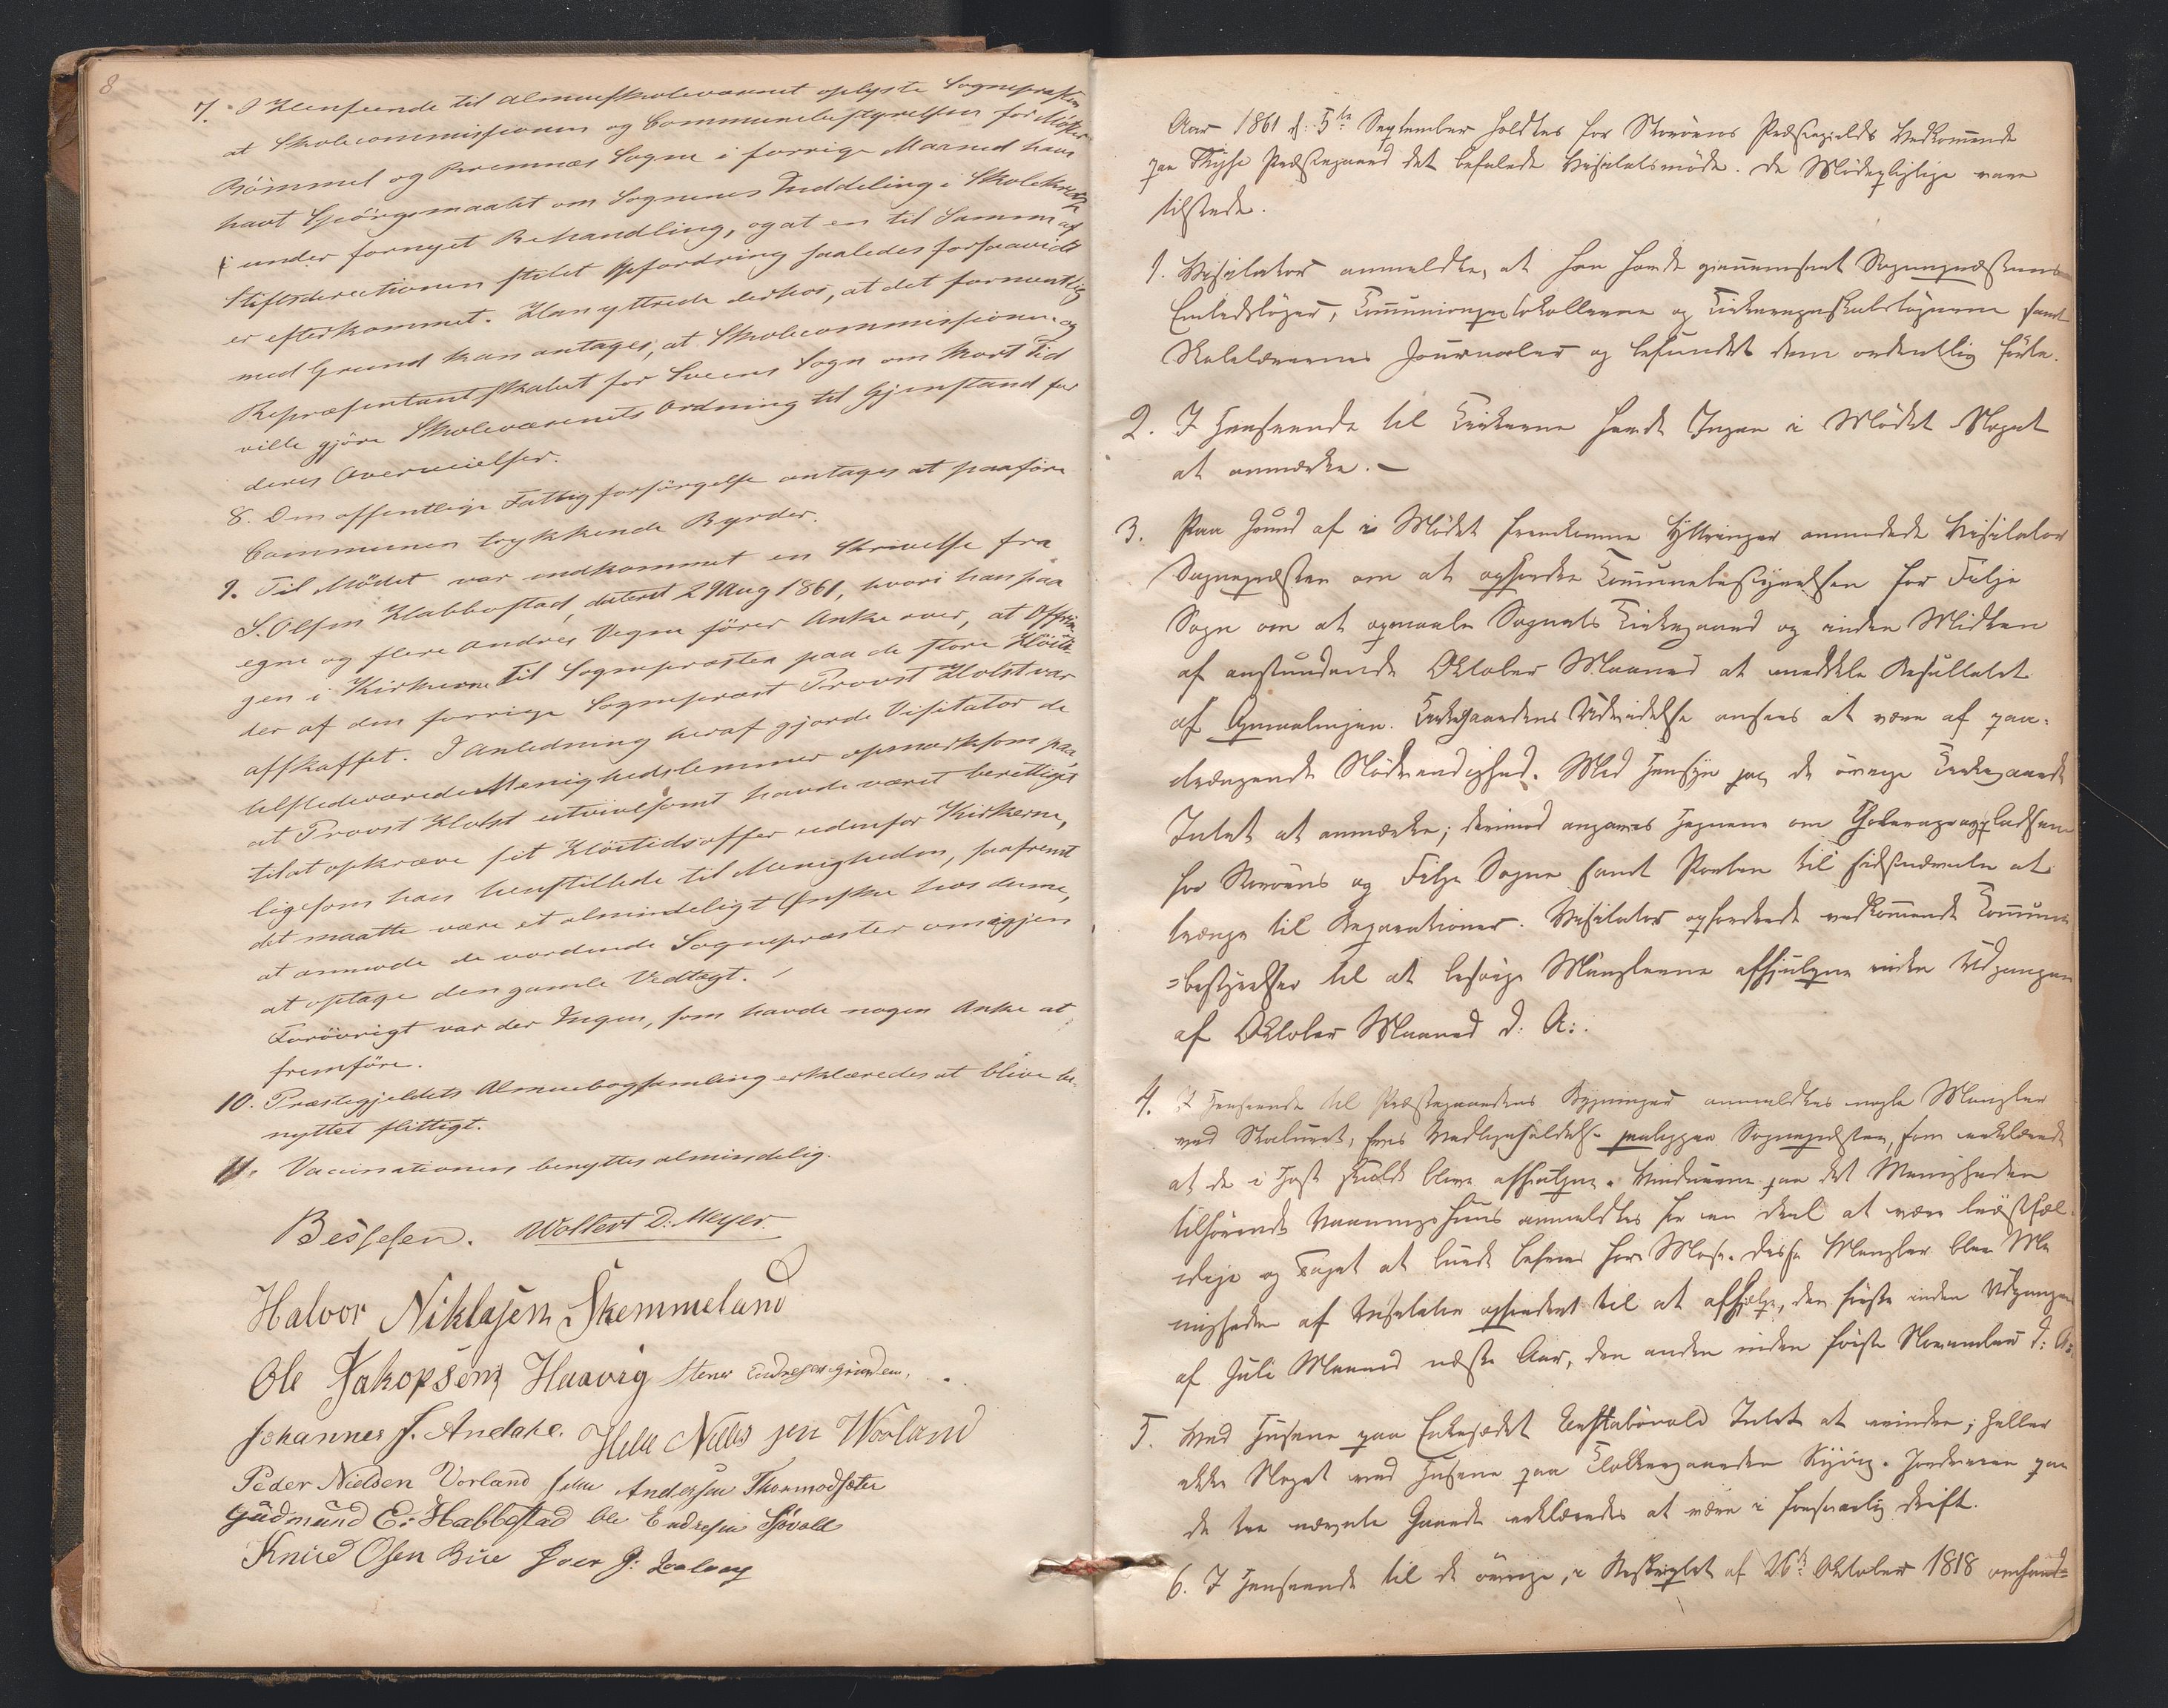 8
7. I Henseende til Almueskolevæsenet oplyste Sognepræsten
at Skolecommissionen og Communebestyrelsen for Møster
Bömmel og Bremnæs Sogne i forrige Maaned have
havt Spörgsmaalet om Sognenes Inddeling i Skolekredse
under fornyet Behandling, og at en til Samme af
Stiftsdirectionen stilet Opfordring saaledes forsaavidt
er efterkommet. Han yttrede derhos, at det formentlig
med Grund kan antages, at Skolecommissionen og
Repræsentantskabet for Sveens Sogn om kort Tid
ville gjöre Skolevæsenets Ordning til Gjenstand for
deres Overveielser.
8. Den offentlige Fattigforsörgelse antages at paaföre
Communen trykkende Byrder.
9. Til Mödet var indkommet en Skrivelse fra
S. Olsen Habbestad, dateret 29 Aug 1861, hvori han paa
egne og flere Andres Vegne förer Anke over, at Offrin
gen i Kirkerne til Sognepræsten paa de store Höiti
der af den forrige Sognepræst Provst Holst var
affskaffet. I Anledning heraf gjorde Visitator de
tilstedeværende Menighedslemmer opmærksom paa
at Provst Holst utvivlsomt havde været berettiget
til at opkræve sit Höitidsoffer udenfor Kirkerne,
ligesom han henstillede til Menigheden, saafremt
det maatte være et almindeligt Önske hos denne,
at anmode de vordende Sognepræster om igjen
at optage den gamle Vedtægt. /
Forövrigt var der Ingen, som havde nogen Anke at
fremföre.
10. Præstegjeldets Almuebogsamling erklæredes at blive be-
nyttet flittigt.
11. Vaccinationen benyttes almindelig.
Bessesen. Wollert D. Meyer.
Halvor Niklasen Skemmeland
Ole Jakopsen Haavig Stener Endresen Grinden.
Johannes J. Andahl. Helle Niels sen Woland
Peder Nielsen Vorland John Andersen Thormodsæter
Gudmund E. Habbestad Ole Endresen
Knud Osen Bue Iver J.
Aar 1861 d: 5te September holdtes for Storöens Præstegjelds Vedkommende
paa Thyse Præstegaard det befalede Visitatsmöde. De Mödepligtige vare
tilstede.
1. Visitator anmeldte, at han havde gjennemseet Sognepræstens
Embedsböger, Communeprotokollerne og Kirkeregnskabsbögerne samt
Skolelærernes Journaler og befundet dem ordentlig förte.
2. I Henseende til Kirkerne havde Ingen i Mödet Noget
at anmærke. –
3. Paa Grund af i Mödet fremkomne Yttringer anmodede Visitator
Sognepræsten om at opfordre Communebestyrelsen for Fitje
Sogn om at opmaale Sognets Kirkegaard og inden Midten
af anstundende Oktober Maaned at meddele Resultatet
af Opmaalingen. Kirkegaardens Udvidelse ansees at være af paa-
trængende Nödvendighed. Med Hensyn paa de övrige Kirkegaarde
Intet at anmærke; derimod angaves Hegnene om Choleragravpladsene
for Storöens og Fitje Sogne samt Porten til sidstnævnte at
trænge til Reparationer. Visitator opfordrede vedkommende Commune
=bestyrelser til at besörge Manglerne afhjulpne inden Udgangen
af Oktober Maaned d: A:.
4. I Henseende til Præstegaardens Bygninger anmeldtes nogle Mangler
ved Staburet, hvis Vedligeholdelse paaligger Sognepræsten, som erklærede
at de i Höst skulde blive afhjulpne. Vinduerne paa det Menigheden
tilhörende Vaaningshuus anmeldtes for en Deel at være bröstfæl-
dige og Taget at burde befries for Mose. Disse Mangler blev Me
nigheden af Visitator opfordret til at afhjelpe, den förste inden Udgangen
af Juli Maaned næste Aar, den anden inden förste November d: A:
5. Ved Husene paa Enkesædet Tenstabövold Intet at erindre; heller
ikke Noget ved Husene paa Klokkergaarden Rydvig. Jordveien paa
de tre nævnte Gaarde erklæredes at være i forsvarlig Drift.
6. I Henseende til de övrige, i Reskriptet af 26de Oktober 1818 omhand=